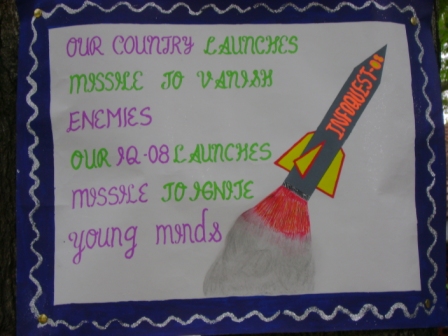 OUR COUNTRY LAUNCHES
MISSILE TO VANISH
ENEMIES
OUR IQ-08 LAUNCHES
MISSILE TO IGNITE
young minds
INFOQUEST-08